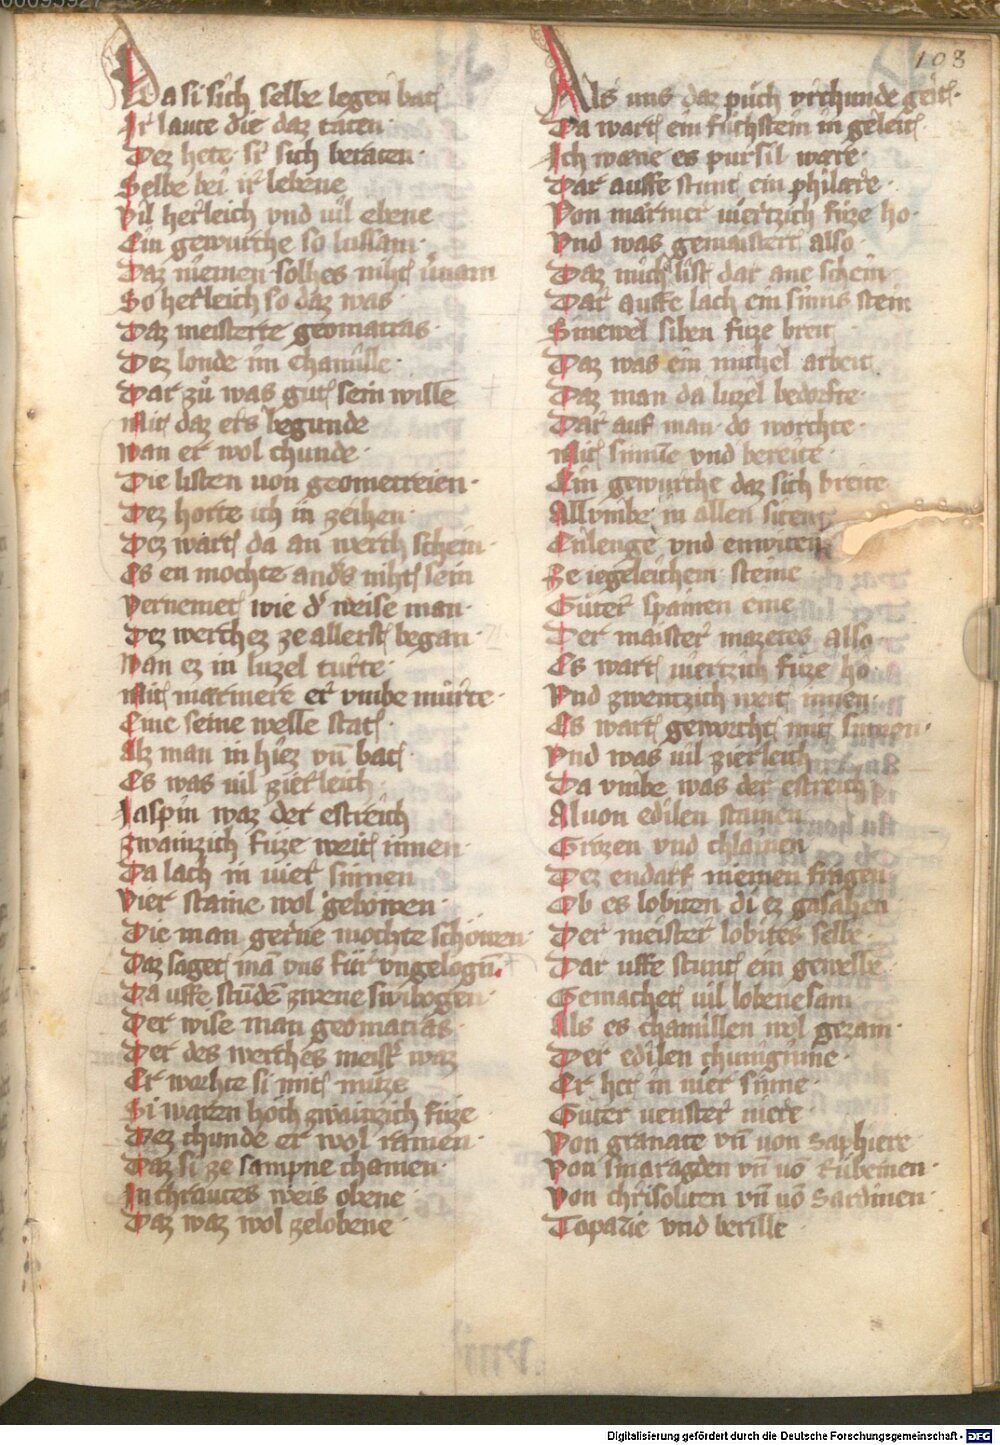 108
Da si sich selbe legen bat
Ir laute die daz taten
Dez hete si sich beraten
Selbe bei ir lebene
Vil herleich vnd vil ebene
Ein gewurche so lussam
Daz niemen solhes niht v̂nam
So herleich so daz was
Daz meisterte geomatras
Dez londe im Chamille
Dar zů was gut sein wille
Mit daz ers begunde
Wan er wol chunde
Die listen von geometreien
Dez horte ich in zeihen
Dez wart da an werch schein
Es en mochte and's niht sein
Vernemet wie d' weise man
Dez werches ze allerst began
Wan ez in luzel turte
Mit marmere er vmbe mûrte
Eine seine welle stat
Alz man in hiez vn̄ bat
Es was vil zierleich
Jaspin waz der estreich
Zwainzich fuze weit innen
Da lach in vier sinnen
Vier staine wol gehowen
Die man gerne mochte schowen
Daz saget mā vns fur vngelogn̄
Da vffe stūdē zwene swibogen
Der wise man geomatras
Der des werches meist' waz
Er worhte si mit mazze
Si waren hoch zwainzich fuze
Dez chunde er wol ramen
Daz si ze sampne chamen
In chrautes weis obene
Daz waz wol zelobene
Als uns daz puch vrchunde geit
Da wart ein fuchstein in geleit
Ich wæne es pursil ware
Dar auffe stunt ein philære
Von marmer viertzich fuze ho
Vnd was gemaistert also
Daz mich' list dar ane schein
Dar auffe lach ein sinus stein
Sinewel siben fuze breit
Daz was ein michel arbeit
Daz man da luzel bedorfte
Dar auf man do worchte
Mit sinne vnd bereite
Ein gewurche daz sich breite
Allvmbe in allen siten
Enlenge vnd enwiten
Ze iegeleichem steine
Guter spannen eine
Der maister mazetes also
Es wart viertzich fuze ho
Vnd zwentzich weit innen
Es wart geworcht mit sinnen
Vnd was vil zierleich
Da vmbe was der estreich
Al von edilen stainen
Grozen vnd chlainen
Dez endarf niemen fragen
Ob es lobiten di ez gasahen
Der meister lobites selbe
Dar uffe stunt ein gewelbe
Gemachet vil lobenesam
Als es chamillen wol gezam
Der edilen chuniginne
Er het in vier sinne
Guter venster viere
Von granate vn̄ von Saphiere
Von smaragden vn̄ vō Rubeinen
Von chrisoliten vn̄ vō Sardinen
Topazie vnd berille
Digitalisierung gefördert durch die Deutsche Forschungsgemeinschaft - DFG